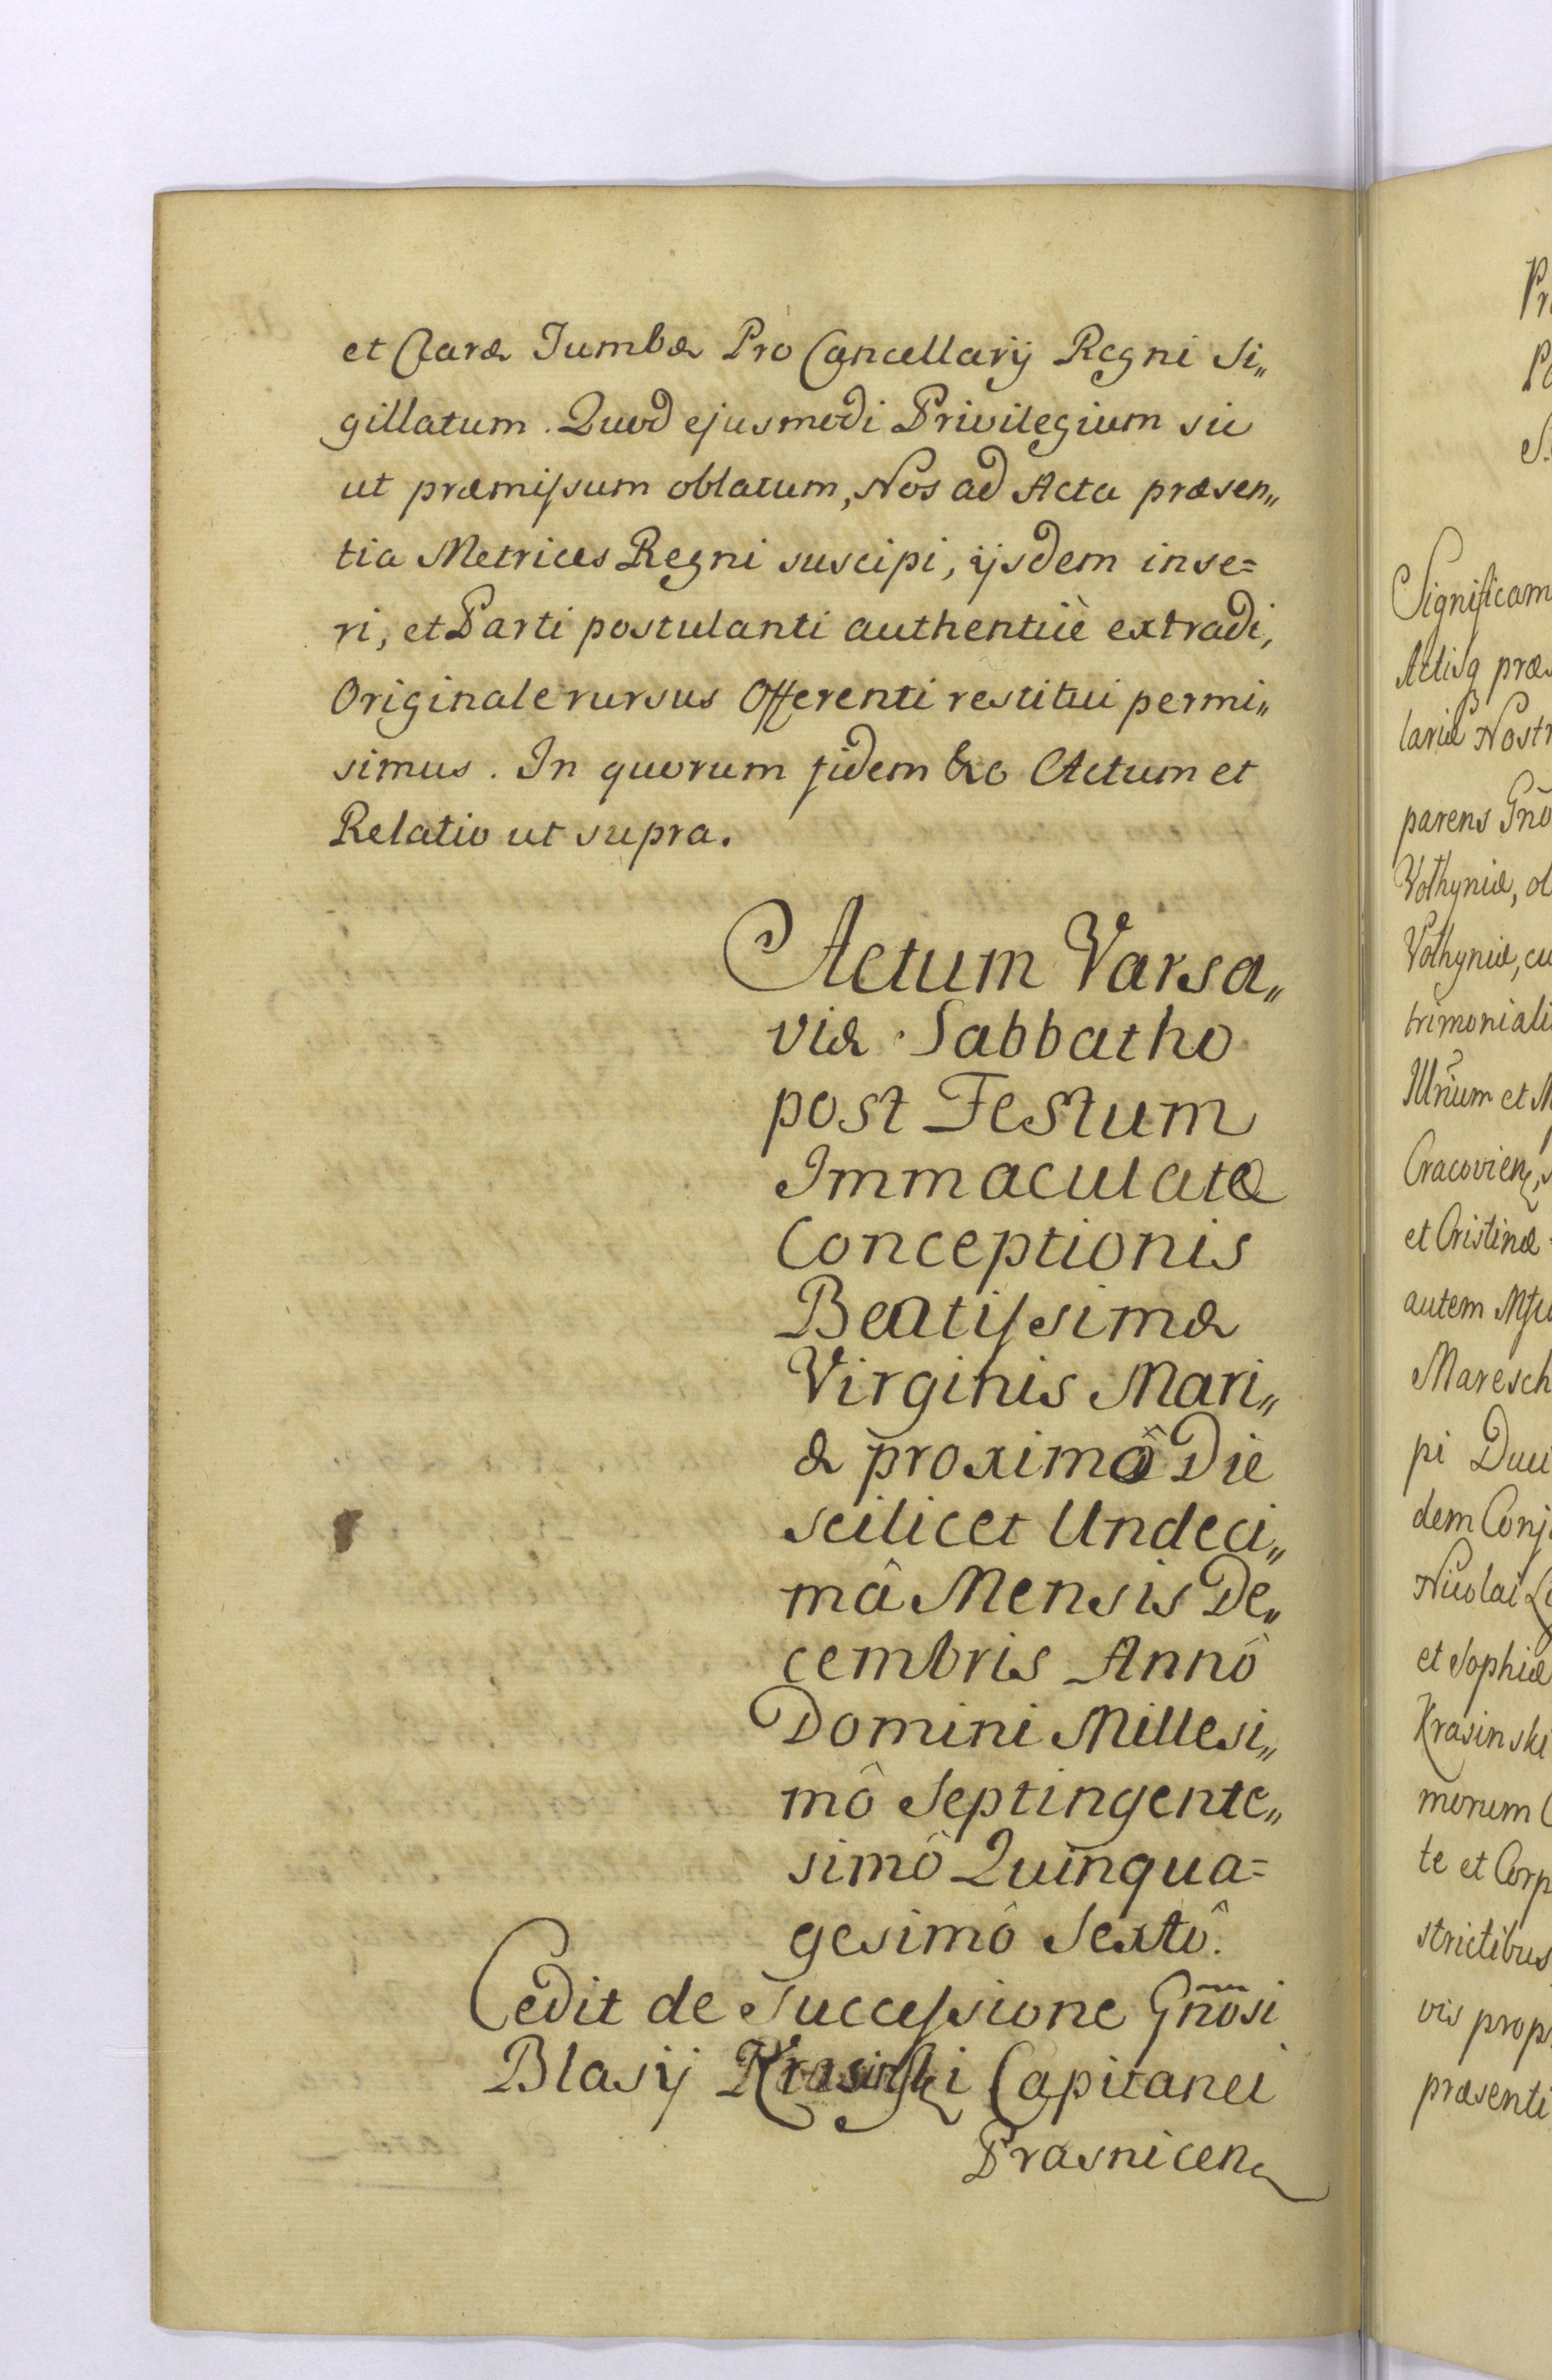 et Claræ Tumbæ Pro Cancellarij Regni Si„
gillatum. Quod ejusmodi Privilegium sic
ut præmissum oblatum, Nos ad Acta præsen„
tia Metrices Regni suscipi, ijsdem inse=
ri, et Parti postulanti authenticè extradi,
Originale rursus Offerenti restitui permi„
simus. In quorum fidem &c Actum et
Relatio ut supra.
Actum Varsa„
viæ Sabbatho
post Festum
Immaculatæ
Conceptionis
Beatissimæ
Virginis Mari„
æ proximô Die
scilicet Undeci„
mâ Mensis De„
cembris Annô
Domini Millesi„
mô Septingente„
simô Quinqua=
gesimô Sextô.
Cedit de Successione Gnõsi
Blasij Krasinski Capitanei
Prasnicen
Pr
Po
S.
Significam
Actisq præs
lariæ Nostr
parens Gnõ
Volhyniæ, ol
Volhyniæ, cu
trimoniali
Illrium et M
Cracovien, s
et Cristinæ
autem
Maresch
pi Duci
dem Conj
Nicolai
et Sophiæ
Krasinski
morum C
te et Corp
strictibus
vis prop
præsenti